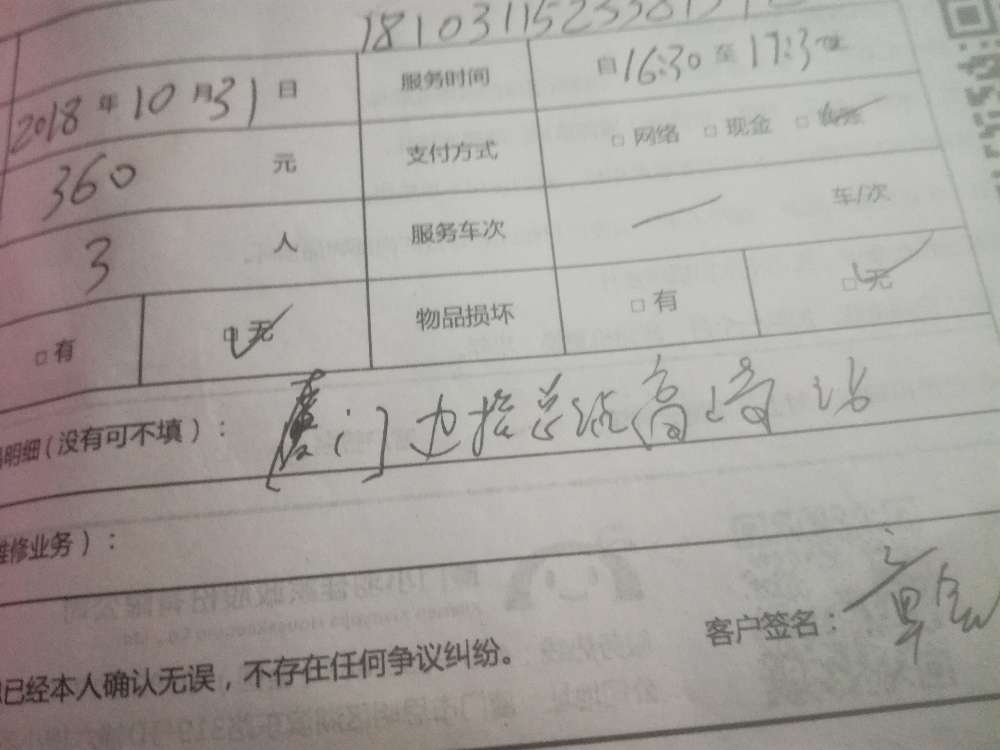 2018年10月31日 服务时间 自16:30至17:3
360元 支付方式 □网络 □现金 □
3人 服务车次 — 车/次
□有 □无 物品损坏 □有 □无
明细(没有可不填): 厦门边检总站高崎站
维修业务):
客户签名:
已经本人确认无误,不存在任何争议纠纷。